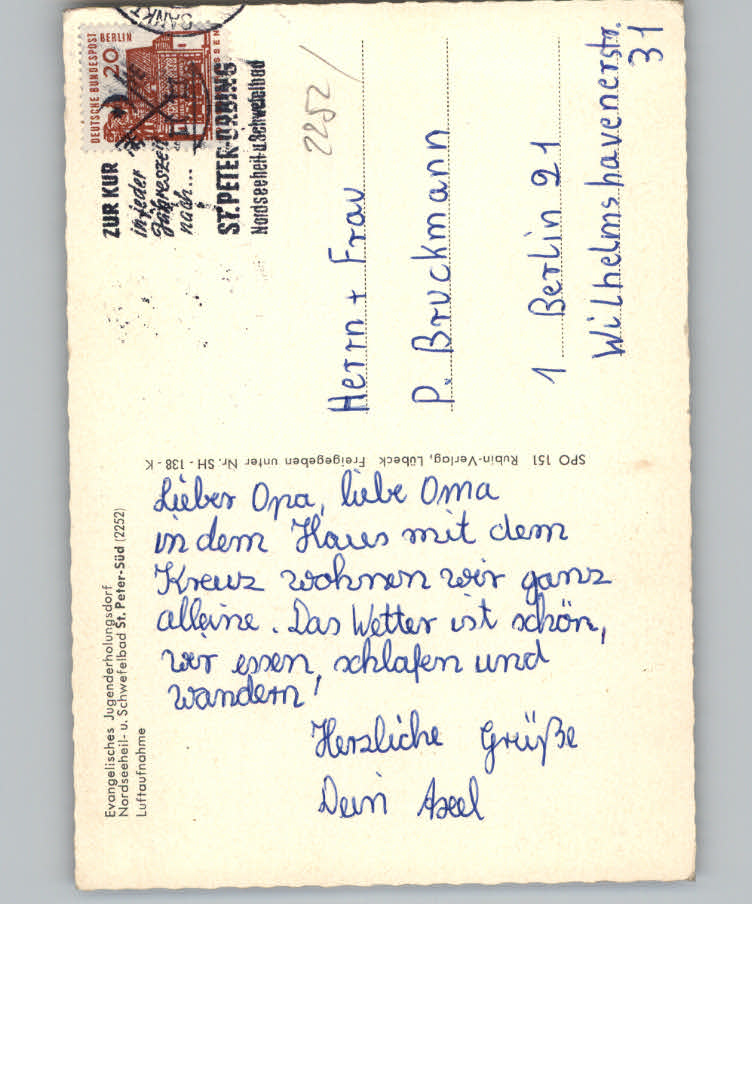 DEUTSCHE BUNDESPOST BERLIN
20
SANKT
ZUR KUR
in jeder
Jahreszeit
nach...
ST. PETER-ORDING
Nordseeheil- u. Schwefelbad
2252
Herrn + Frau
P. Bruckmann
1 Berlin 21
Wilhelmshavenerstr.
31
SPO 151 Rubin-Verlag, Lübeck Freigegeben unter Nr. SH - 138 - K
Evangelisches Jugenderholungsdorf
Nordseeheil- u. Schwefelbad St. Peter-Süd (2252)
Luftaufnahme
Lieber Opa, liebe Oma
in dem Haus mit dem
Kreuz wohnen wir ganz
alleine. Das Wetter ist schön,
wir essen, schlafen und
wandern!
Herzliche Grüße
Dein Axel